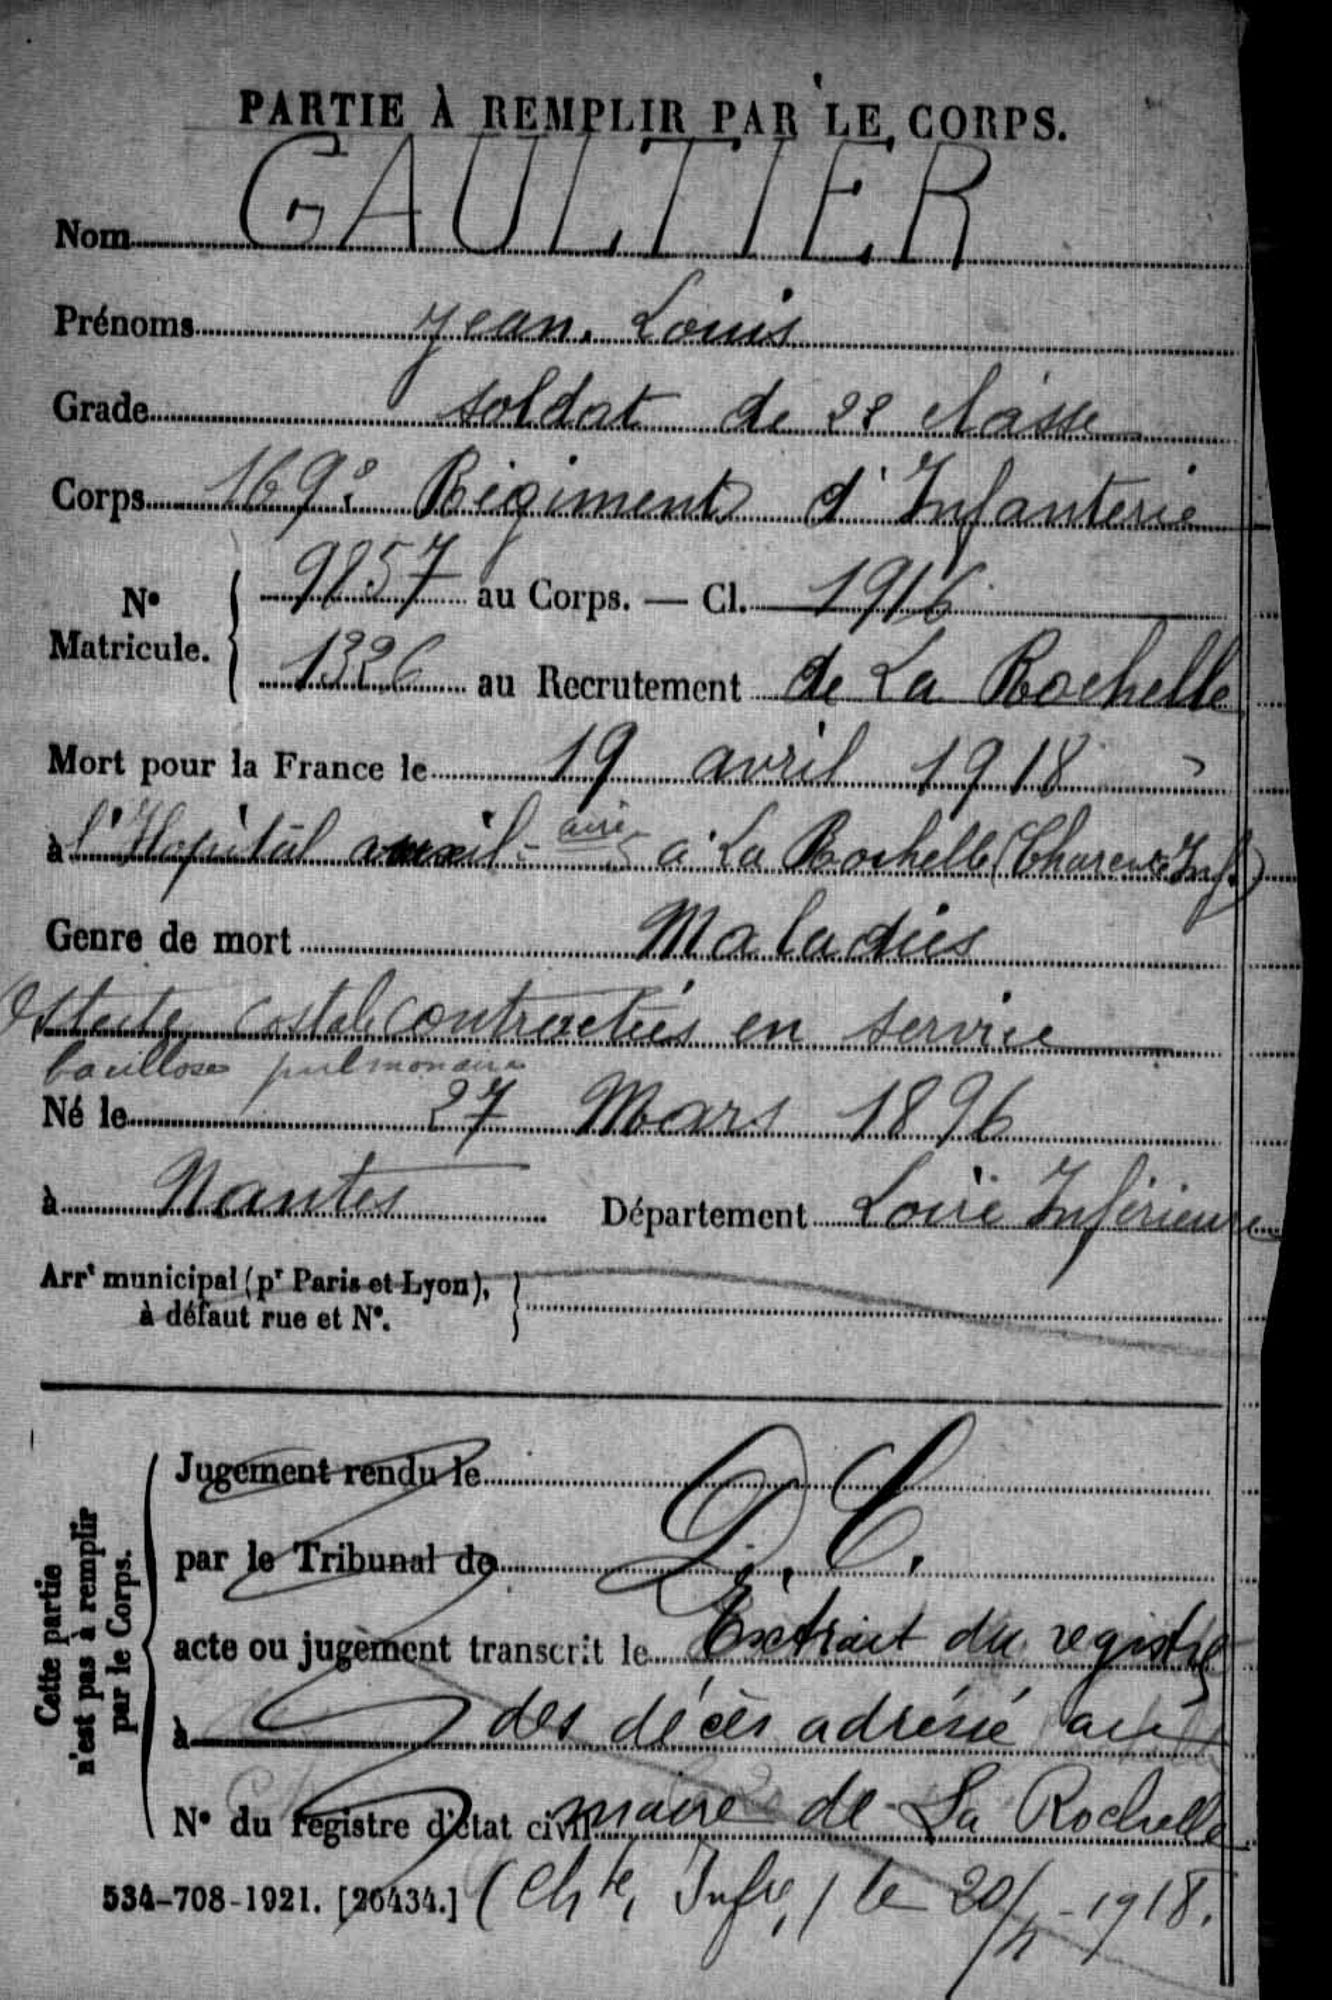 PARTIE À REMPLIR PAR LE CORPS.
Nom GAULTIER
Prénoms Jean. Louis
Grade soldat de 2e classe
Corps 169e Régiment d'Infanterie
N° Matricule. { 9857 au Corps. — Cl. 1916
1326 au Recrutement de La Rochelle
Mort pour la France le 19 avril 1918
à l'Hopital auxil-aire à La Rochelle (Charente Inf.)
Genre de mort Maladies
Ostéite costale contractées en service
bacillose pulmonaire
Né le 27 Mars 1896
à Nantes Département Loire Inférieure
Arrt municipal (pr Paris et Lyon),
à défaut rue et N°.
Cette partie n'est pas à remplir par le Corps.
Jugement rendu le
par le Tribunal de D. C.
acte ou jugement transcrit le Extrait du registre
à des décès adressé au
N° du registre d'état civil maire de La Rochelle
534-708-1921. [26434.] (Chte, Infre,) le 20/4-1918.